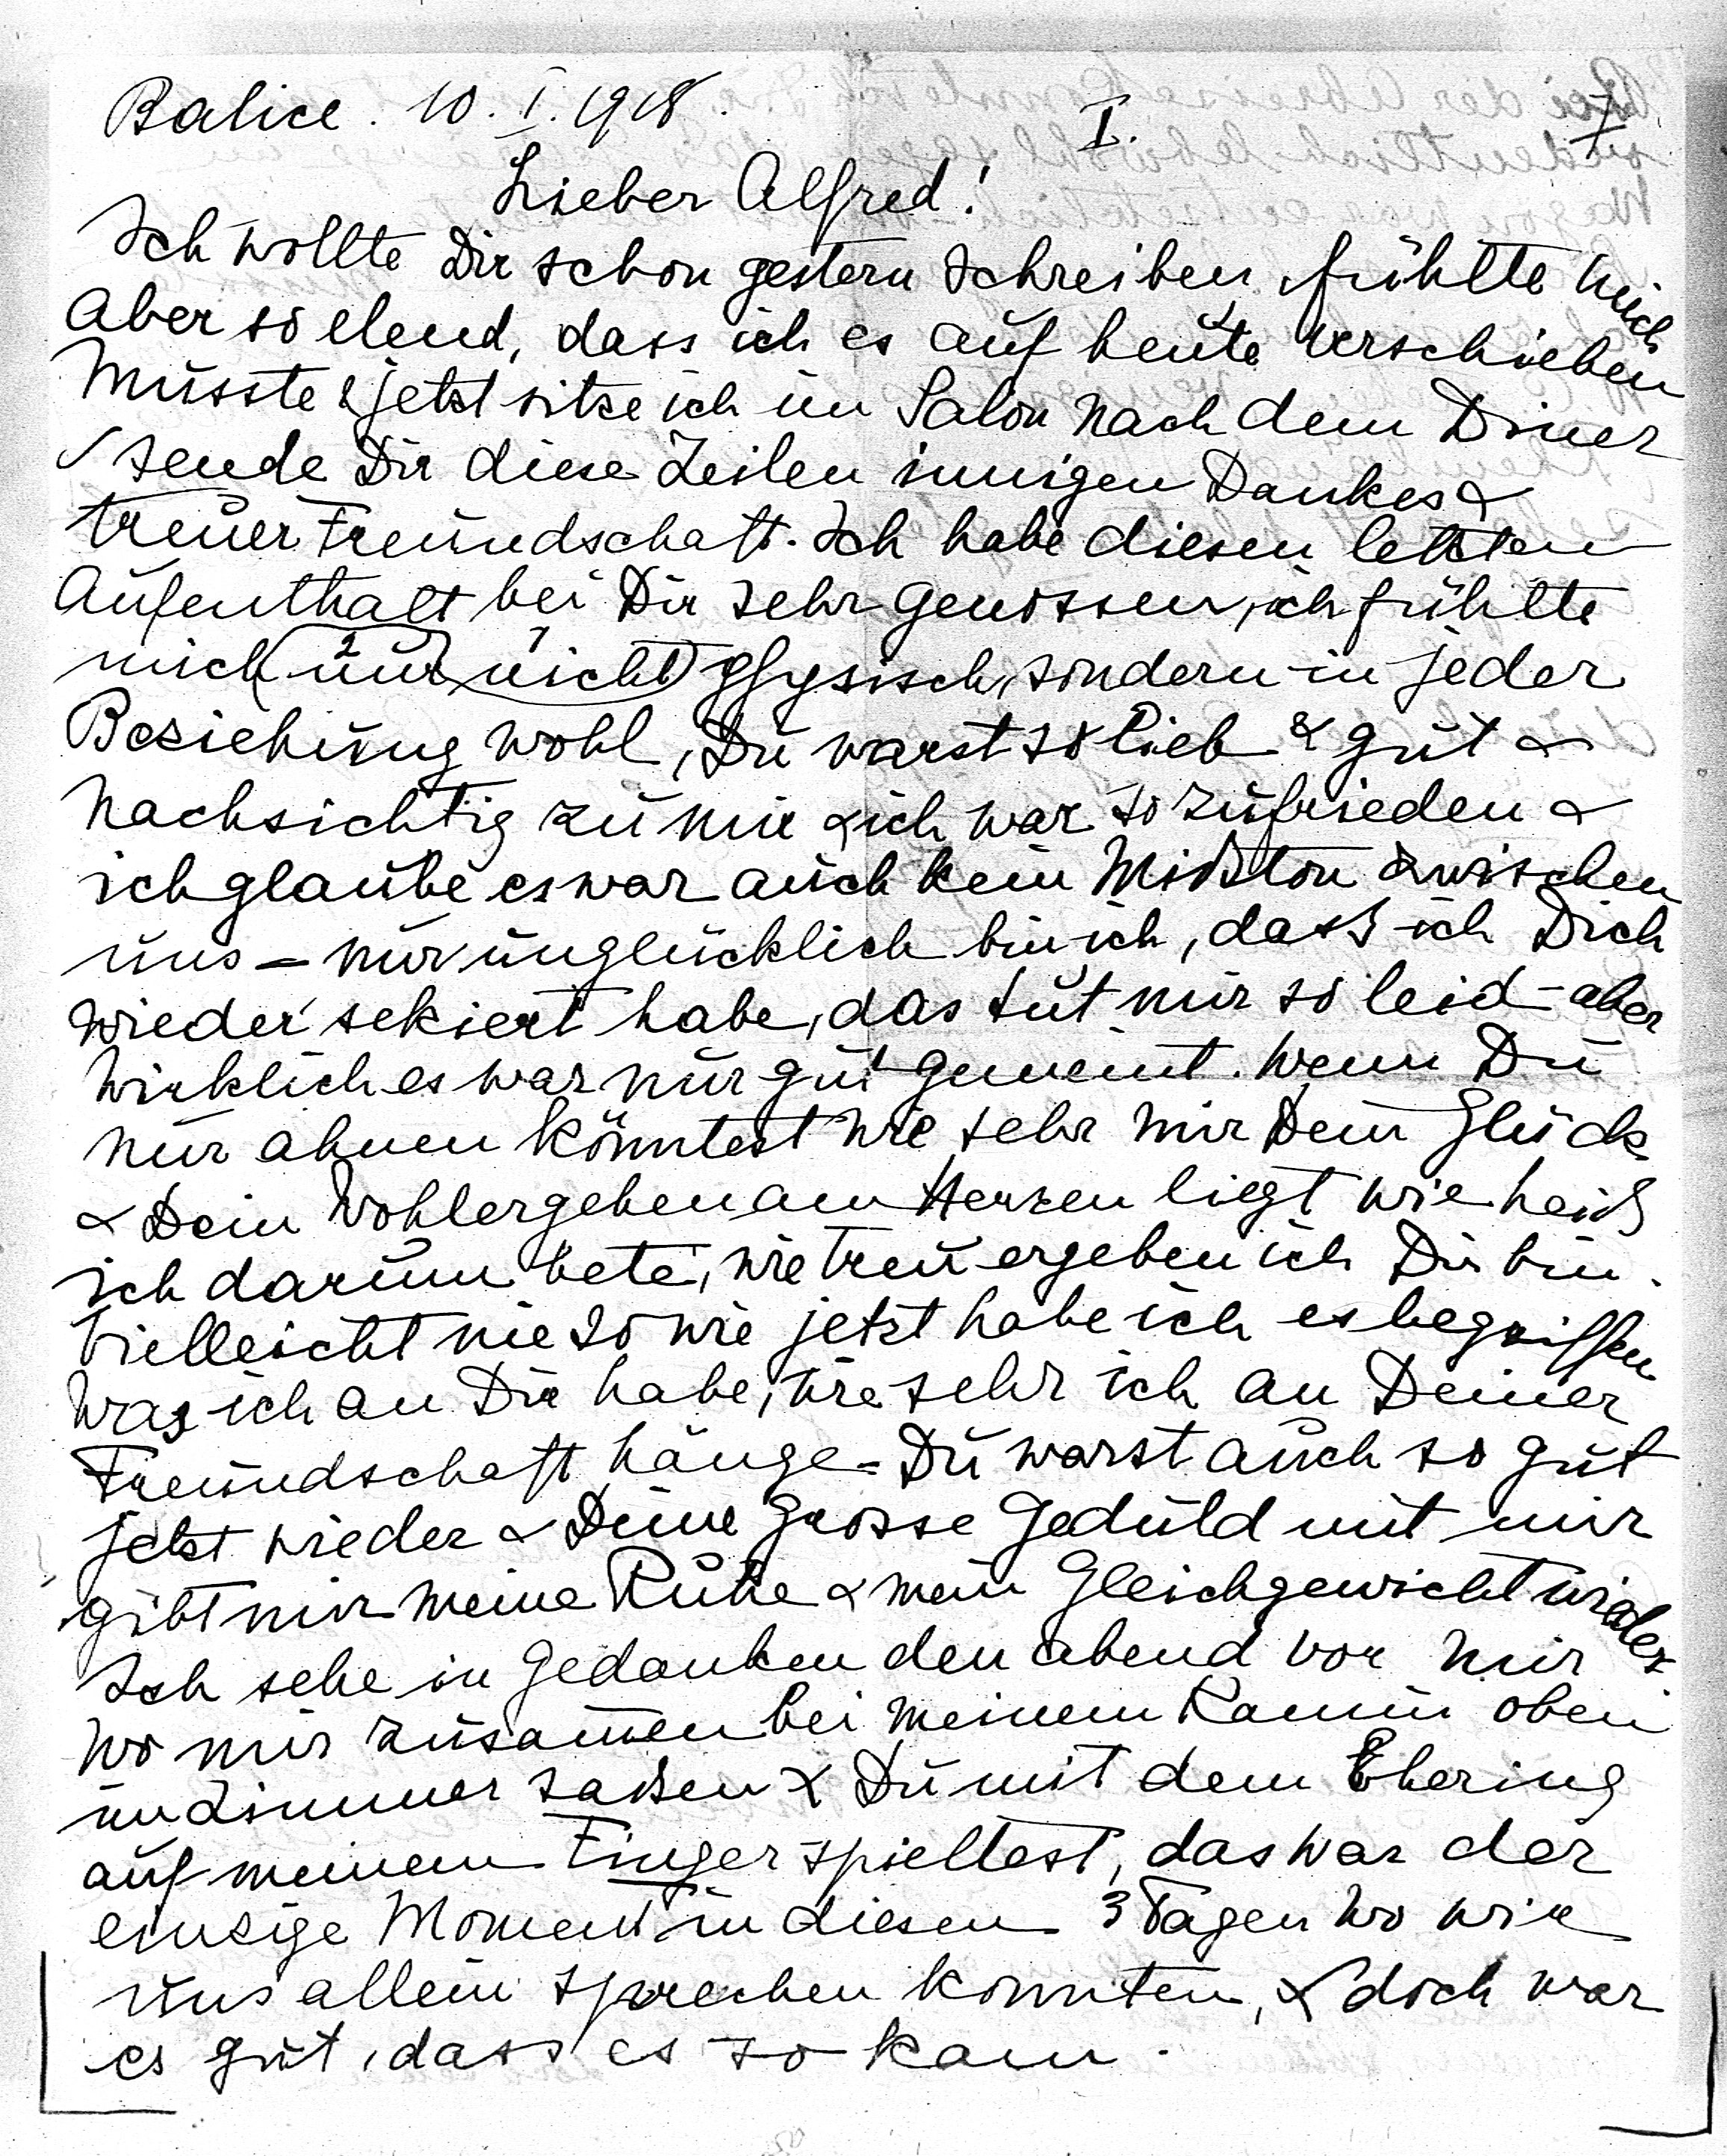 Balice. 10. I. 1918. I. 7
Lieber Alfred!
Ich wollte Dir schon gestern schreiben, fühlte mich
aber so elend, dass ich es auf heute verschieben
musste & jetzt sitze ich im Salon nach dem Diner
& sende Dir diese Zeilen innigen Dankes &
treuer Freundschaft. Ich habe diesen letzten
Aufenthalt bei Dir sehr genossen, ich fühlte
mich (nur 2 nicht 1) physisch, sondern in jeder
Beziehung wohl, Du warst so lieb & gut &
nachsichtig zu mir & ich war so zufrieden &
ich glaube es war auch kein Mißton zwischen
uns – nur unglücklich bin ich, daß ich Dich
wieder sekiert habe, das tut mir so leid – aber
wirklich es war nur gut gemeint. Wenn Du
nur ahnen könntest wie sehr mir Dein Glück
& Dein Wohlergehen am Herzen liegt wie heiß
ich darum bete, wie treu ergeben ich Dir bin.
Vielleicht nie so wie jetzt habe ich es begriffen
was ich an Dir habe, wie sehr ich an Deiner
Freundschaft hänge – Du warst auch so gut
jetzt wieder & Deine grosse Geduld mit mir
gibt mir meine Ruhe & mein Gleichgewicht wieder.
Ich sehe in Gedanken den abend vor mir
wo mir zusam̄en bei meinem Kamin oben
im Zimmer saßen & Du mit dem Ehering
auf meinem Finger spieltest, das war der
einzige Moment in diesen 3 Tagen wo wir
uns allein sprechen konnten, & doch war
es gut, dass es so kam.